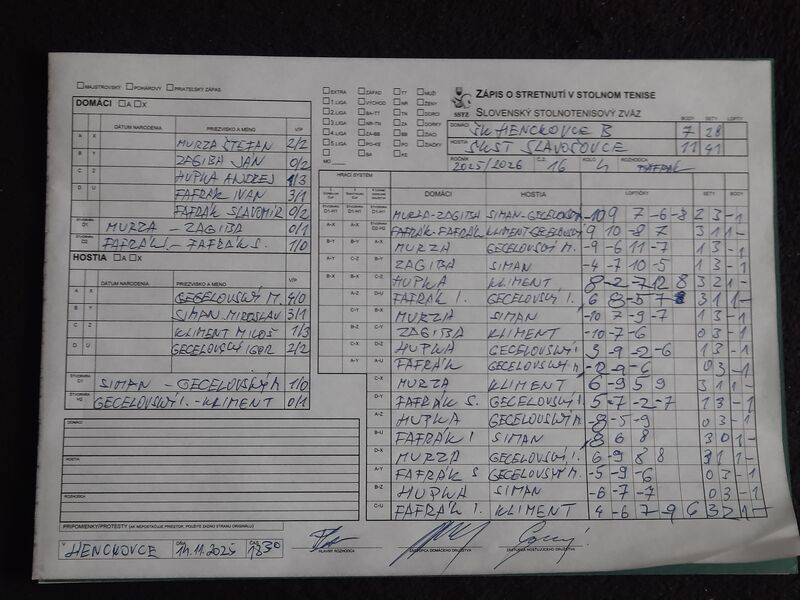 MAJSTROVSKÝ POHÁROVÝ PRIATEĽSKÝ ZÁPAS
DOMÁCI A X
DÁTUM NARODENIA PRIEZVISKO A MENO V/P
A X MURZA ŠTEFAN 2/2
B Y ZAGIBA JÁN 0/2
C Z HUPKA ANDREJ 1/3
D U FAFRÁK IVAN 3/1
FAFRÁK SLAVOMÍR 0/2
ŠTVORHRA D1 MURZA - ZAGIBA 0/1
ŠTVORHRA D2 FAFRÁK I. - FAFRÁK S. 1/0
HOSTIA A X
DÁTUM NARODENIA PRIEZVISKO A MENO V/P
A X GECELOVSKÝ M. 4/0
B Y SIMAN MIROSLAV 3/1
C Z KLIMENT MILOŠ 1/3
D U GECELOVSKÝ IGOR 2/2
ŠTVORHRA SIMAN - GECELOVSKÝ M 1/0
ŠTVORHRA GECELOVSKÝ I. - KLIMENT 0/1
DOMÁCI
HOSTIA
ROZHODCA
PRIPOMIENKY/PROTESTY (AK NEPOSTAČUJE PRIESTOR, POUŽITE ZADNÚ STRANU ORIGINÁLU)
V HENCKOVCE DŇA 14.11.2025 ČAS 18:30
HLAVNÝ ROZHODCA ZÁSTUPCA DOMÁCEHO DRUŽSTVA ZÁSTUPCA HOSŤUJÚCEHO DRUŽSTVA
EXTRA ZÁPAD TT MUŽI
1. LIGA VÝCHOD NR ŽENY
2. LIGA BA-TT TN DORCI
3. LIGA NR-TN ZA DORKY
4. LIGA ZA-BB BB ŽIACI
5. LIGA PO-KE PO ŽIAČKY
BA KE
MO
SSTZ
ZÁPIS O STRETNUTÍ V STOLNOM TENISE
SLOVENSKÝ STOLNOTENISOVÝ ZVÄZ
BODY SETY LOPTY
DOMÁCI ŠK HENCKOVCE B 7 28
HOSTIA ŠKST SLAVOŠOVCE 11 41
ROČNÍK 2025/2026 Č.Z. 16 KOLO 4 ROZHODCA FAFRÁK
HRACÍ SYSTÉM
DOMÁCI HOSTIA LOPTIČKY SETY BODY
MURZA-ZAGIBA SIMAN-GECELOVSKÝ -10 9 7 -6 -8 2 3 - 1
FAFRÁK-FAFRÁK KLIMENT-GECELOVSKÝ 9 10 -8 7 3 1 1 -
MURZA GECELOVSKÝ M. -9 -6 11 -7 1 3 - 1
ZAGIBA SIMAN -4 -7 10 -5 1 3 - 1
HUPKA KLIMENT 8 -2 -7 12 8 3 2 1 -
FAFRÁK I. GECELOVSKÝ I. 6 8 -5 7 3 1 1 -
MURZA SIMAN -10 7 -9 -7 1 3 - 1
ZAGIBA KLIMENT -10 -7 -6 0 3 - 1
HUPKA GECELOVSKÝ I 3 -9 -2 -6 1 3 - 1
FAFRÁK GECELOVSKÝ -12 -9 -6 0 3 - 1
MURZA KLIMENT 6 -9 5 9 3 1 1 -
FAFRÁK S. GECELOVSKÝ I. 5 -7 -2 -7 1 3 - 1
HUPKA GECELOVSKÝ M. -8 -5 -9 0 3 - 1
FAFRÁK I SIMAN 8 6 8 3 0 1 -
MURZA GECELOVSKÝ I. 6 -9 8 8 3 1 1 -
FAFRÁK S GECELOVSKÝ M. -5 -9 -6 0 3 - 1
HUPKA SIMAN -6 -7 -7 0 3 - 1
FAFRÁK I. KLIMENT 4 -6 -7 9 6 3 2 1 -